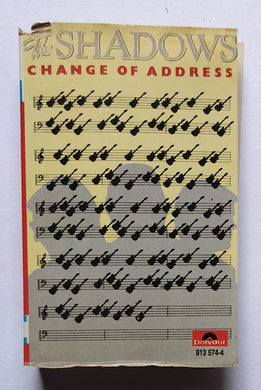 The SHADOWS
CHANGE OF ADDRESS
polydor
813 574-4